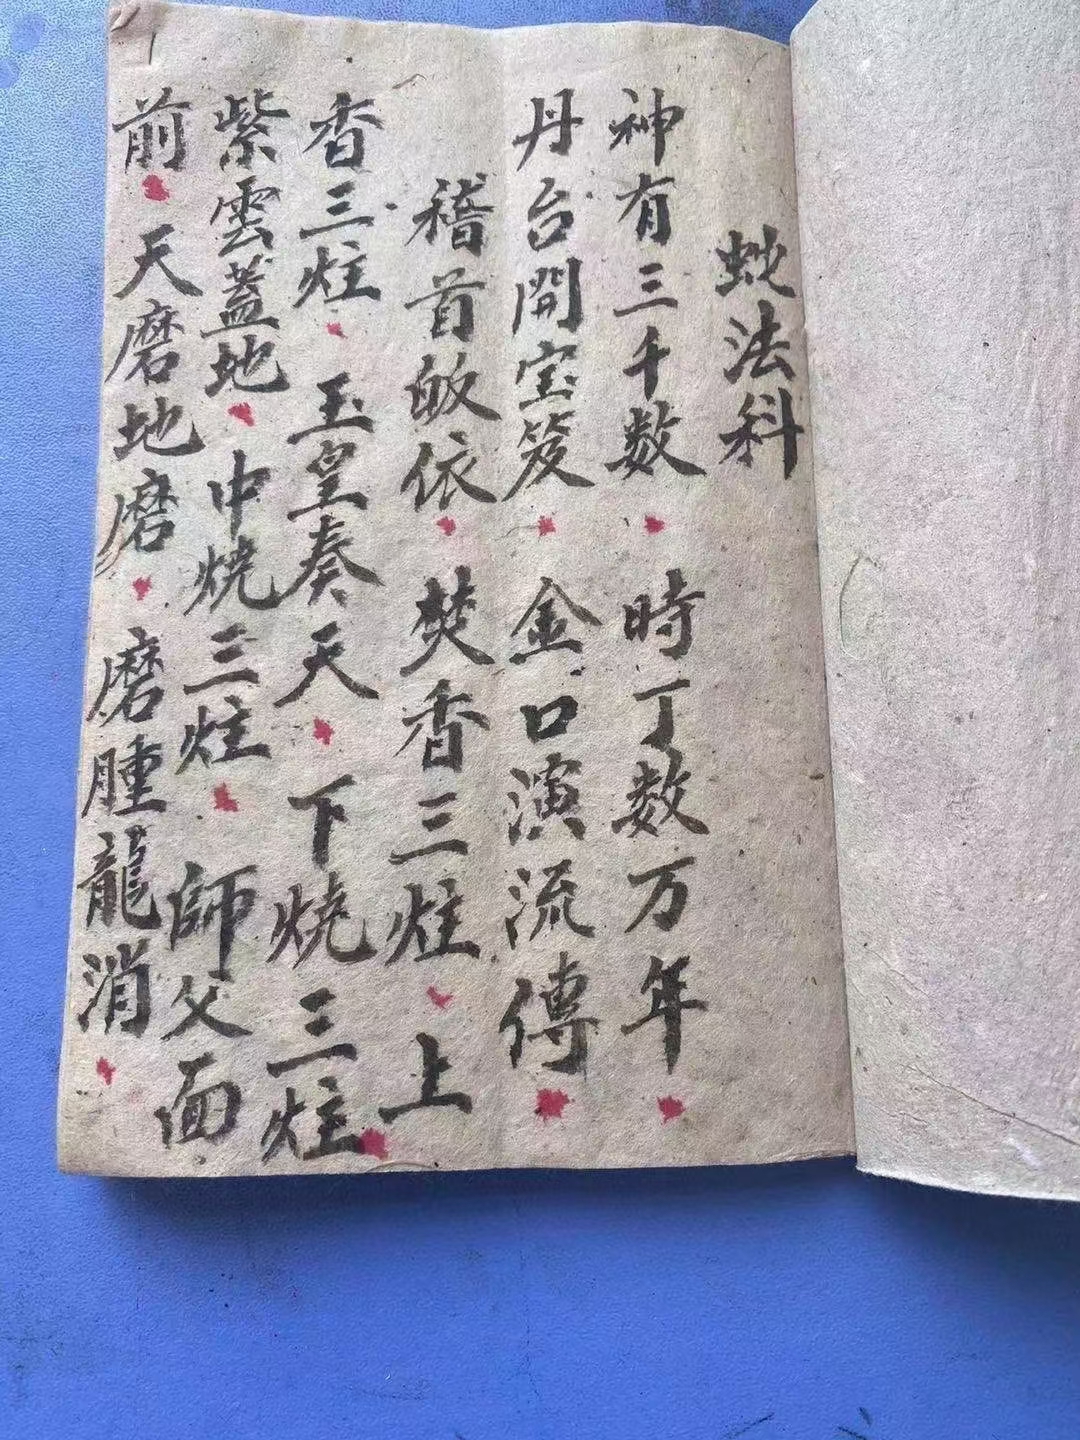 虵法科
神有三千数 時丁数万年
丹台開宝笈 金口演流傳
稽首皈依 焚香三炷 上
香三炷 玉皇奏天 下燒三炷
紫雲蓋地 中焼三炷 師父面
前 天磨地磨 磨腫龍消